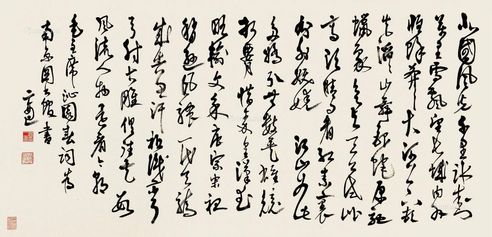 北國風光千里冰封
萬里雪飄望長城内外
惟餘莽莽大河上下頓
失滔滔山舞銀蛇原馳
蠟象欲與天公試比
高須晴日看紅裝素裹
分外妖嬈 江山如此
多嬌引無數英雄競
折腰惜秦皇漢武
略輸文采唐宗宋祖
稍遜風騷一代天驕
成吉思汗祇識彎
弓射大雕俱往矣數
風流人物還看今朝
毛主席沁園春詞為
書
二適